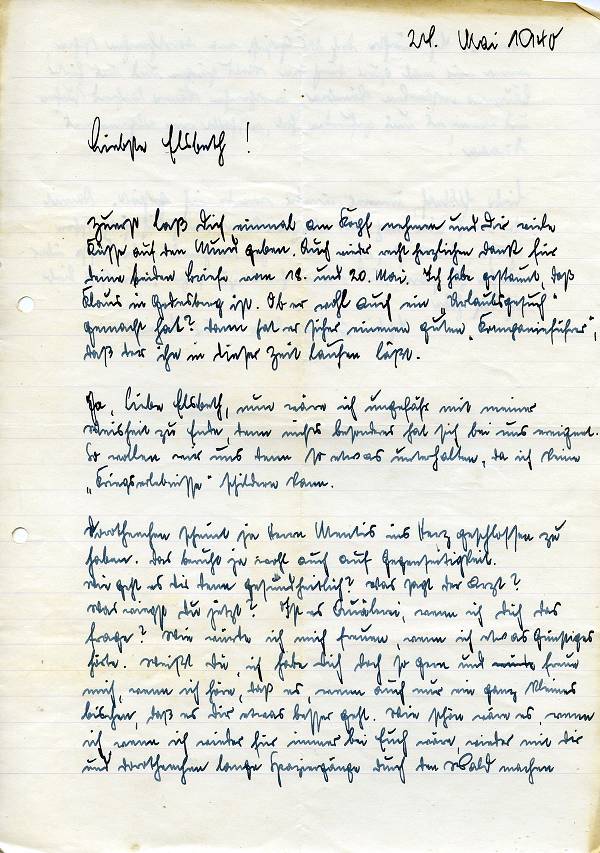 24. Mai 1940
Liebste Elsbeth!
Zuerst laß Dich einmal am Kopf nehmen und Dir viele
Küsse auf den Mund geben. Auch wieder recht herzlichen Dank für
deine beiden Briefe vom 18. und 20. Mai. Ich habe gestaunt, daß
Klaus in Godesberg ist. Ob er wohl auch ein "Urlaubsgesuch"
gemacht hat? Dann hat er sicher einen guten "Kompanieführer",
daß der ihn in dieser Zeit laufen läßt.
Ja, liebe Elsbeth, nun wäre ich ungefähr mit meiner
Weisheit zu Ende, denn nichts besonders hat sich bei uns ereignet.
So wollen wir uns denn so etwas unterhalten, da ich keine
"Kriegserlebnisse" schildern kann.
Dorothenchen scheint ja Herrn ins Herz geschlossen zu
haben. Das beruht ja wohl auch auf Gegenseitigkeit.
Wie geht es dir denn gesundheitlich? Was sagt der Arzt?
Was du jetzt? Ist es Quälerei, wenn ich dich das
frage? Wie würde ich mich freuen, wenn ich etwas Günstiges
hörte. Weißt du, ich habe dich doch so gern und freue
mich, wenn ich höre, daß es, wenn auch nur ein ganz kleines
bischen, daß es dir etwas besser geht. Wie schön wäre es, wenn
ich wenn ich wieder für immer bei Euch wäre, wieder mit dir
und Dorothenchen lange Spaziergänge durch den Wald machen